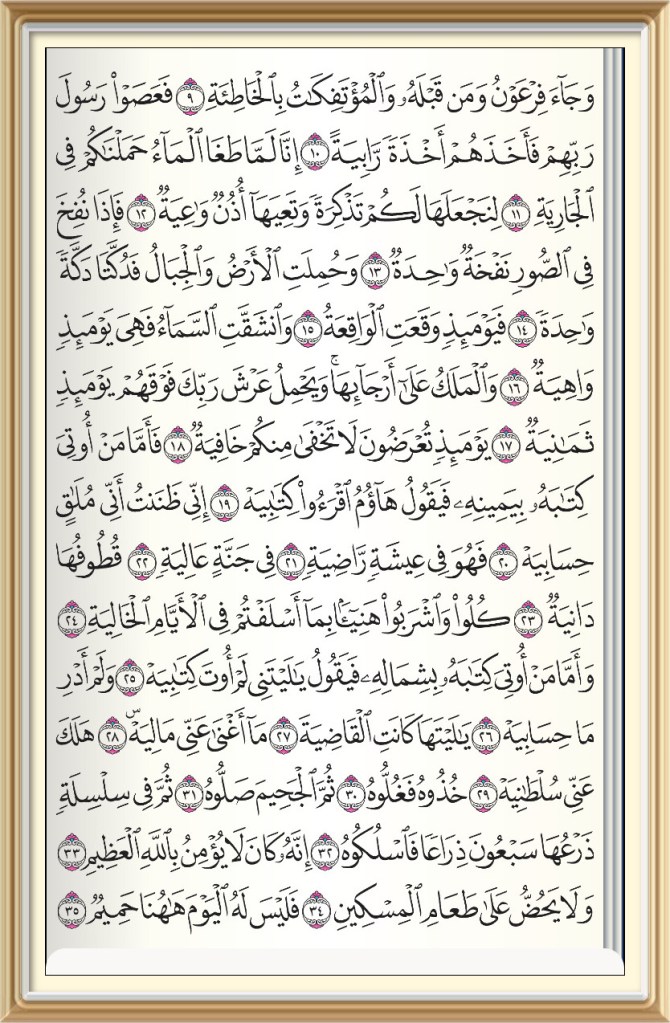 وَجَآءَ فِرْعَوْنُ وَمَن قَبْلَهُۥ وَٱلْمُؤْتَفِكَٰتُ بِٱلْخَاطِئَةِ ٩ فَعَصَوْا۟ رَسُولَ
رَبِّهِمْ فَأَخَذَهُمْ أَخْذَةً رَّابِيَةً ١٠ إِنَّا لَمَّا طَغَا ٱلْمَآءُ حَمَلْنَٰكُمْ فِى
ٱلْجَارِيَةِ ١١ لِنَجْعَلَهَا لَكُمْ تَذْكِرَةً وَتَعِيَهَآ أُذُنٌ وَٰعِيَةٌ ١٢ فَإِذَا نُفِخَ
فِى ٱلصُّورِ نَفْخَةٌ وَٰحِدَةٌ ١٣ وَحُمِلَتِ ٱلْأَرْضُ وَٱلْجِبَالُ فَدُكَّتَا دَكَّةً
وَٰحِدَةً ١٤ فَيَوْمَئِذٍ وَقَعَتِ ٱلْوَاقِعَةُ ١٥ وَٱنشَقَّتِ ٱلسَّمَآءُ فَهِىَ يَوْمَئِذٍ
وَاهِيَةٌ ١٦ وَٱلْمَلَكُ عَلَىٰٓ أَرْجَآئِهَا ۚ وَيَحْمِلُ عَرْشَ رَبِّكَ فَوْقَهُمْ يَوْمَئِذٍ
ثَمَٰنِيَةٌ ١٧ يَوْمَئِذٍ تُعْرَضُونَ لَا تَخْفَىٰ مِنكُمْ خَافِيَةٌ ١٨ فَأَمَّا مَنْ أُوتِىَ
كِتَٰبَهُۥ بِيَمِينِهِۦ فَيَقُولُ هَآؤُمُ ٱقْرَءُوا۟ كِتَٰبِيَهْ ١٩ إِنِّى ظَنَنتُ أَنِّى مُلَٰقٍ
حِسَابِيَهْ ٢٠ فَهُوَ فِى عِيشَةٍ رَّاضِيَةٍ ٢١ فِى جَنَّةٍ عَالِيَةٍ ٢٢ قُطُوفُهَا
دَانِيَةٌ ٢٣ كُلُوا۟ وَٱشْرَبُوا۟ هَنِيٓـًٔۢا بِمَآ أَسْلَفْتُمْ فِى ٱلْأَيَّامِ ٱلْخَالِيَةِ ٢٤
وَأَمَّا مَنْ أُوتِىَ كِتَٰبَهُۥ بِشِمَالِهِۦ فَيَقُولُ يَٰلَيْتَنِى لَمْ أُوتَ كِتَٰبِيَهْ ٢٥ وَلَمْ أَدْرِ
مَا حِسَابِيَهْ ٢٦ يَٰلَيْتَهَا كَانَتِ ٱلْقَاضِيَةَ ٢٧ مَآ أَغْنَىٰ عَنِّى مَالِيَهْ ۜ ٢٨ هَلَكَ
عَنِّى سُلْطَٰنِيَهْ ٢٩ خُذُوهُ فَغُلُّوهُ ٣٠ ثُمَّ ٱلْجَحِيمَ صَلُّوهُ ٣١ ثُمَّ فِى سِلْسِلَةٍ
ذَرْعُهَا سَبْعُونَ ذِرَاعًا فَٱسْلُكُوهُ ٣٢ إِنَّهُۥ كَانَ لَا يُؤْمِنُ بِٱللَّهِ ٱلْعَظِيمِ ٣٣
وَلَا يَحُضُّ عَلَىٰ طَعَامِ ٱلْمِسْكِينِ ٣٤ فَلَيْسَ لَهُ ٱلْيَوْمَ هَٰهُنَا حَمِيمٌ ٣٥